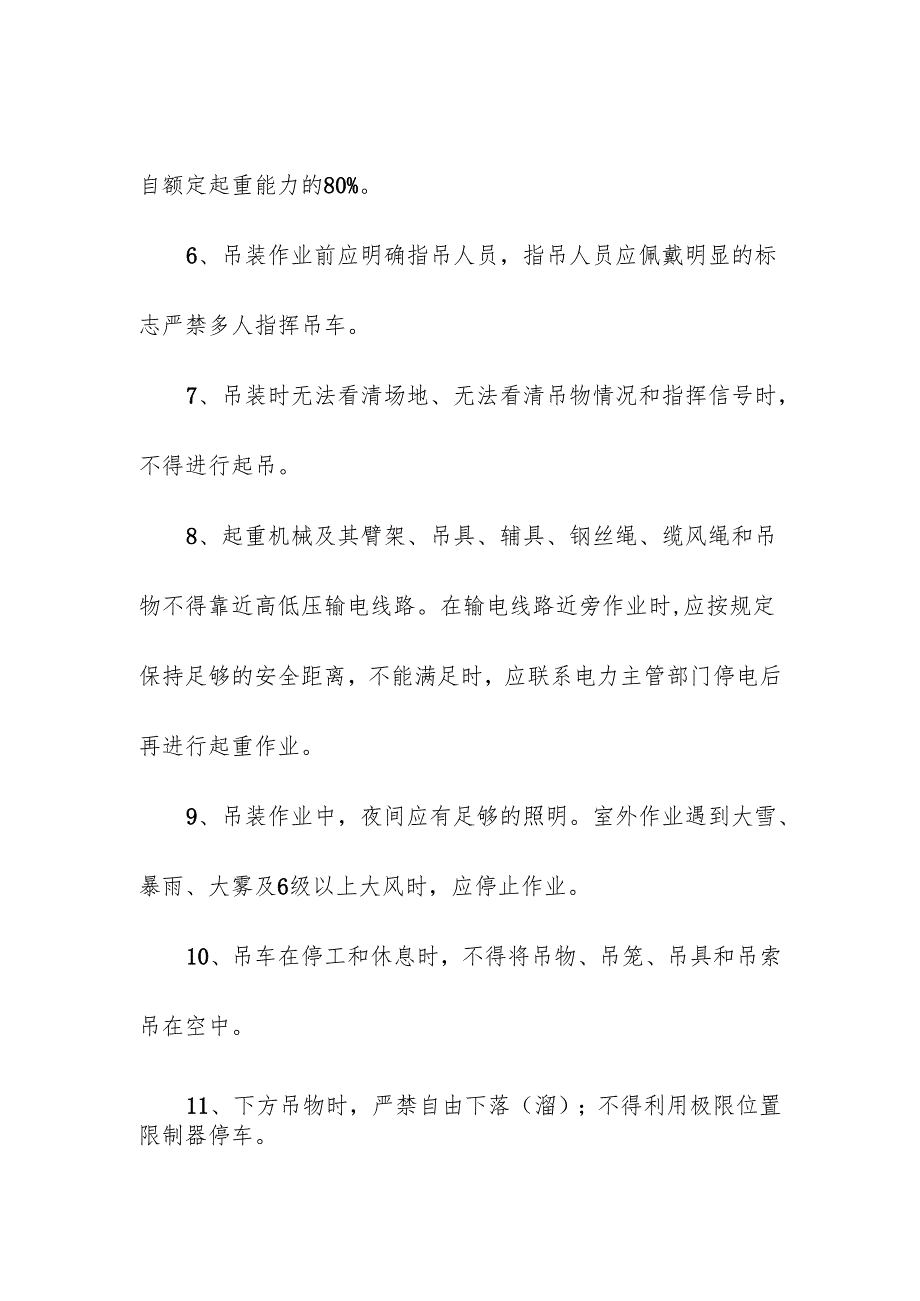 自额定起重能力的80%。
6、吊装作业前应明确指吊人员，指吊人员应佩戴明显的标
志严禁多人指挥吊车。
7、吊装时无法看清场地、无法看清吊物情况和指挥信号时，
不得进行起吊。
8、起重机械及其臂架、吊具、辅具、钢丝绳、缆风绳和吊
物不得靠近高低压输电线路。在输电线路近旁作业时,应按规定
保持足够的安全距离，不能满足时，应联系电力主管部门停电后
再进行起重作业。
9、吊装作业中，夜间应有足够的照明。室外作业遇到大雪、
暴雨、大雾及6级以上大风时，应停止作业。
10、吊车在停工和休息时，不得将吊物、吊笼、吊具和吊索
吊在空中。
11、下方吊物时，严禁自由下落（溜）；不得利用极限位置
限制器停车。